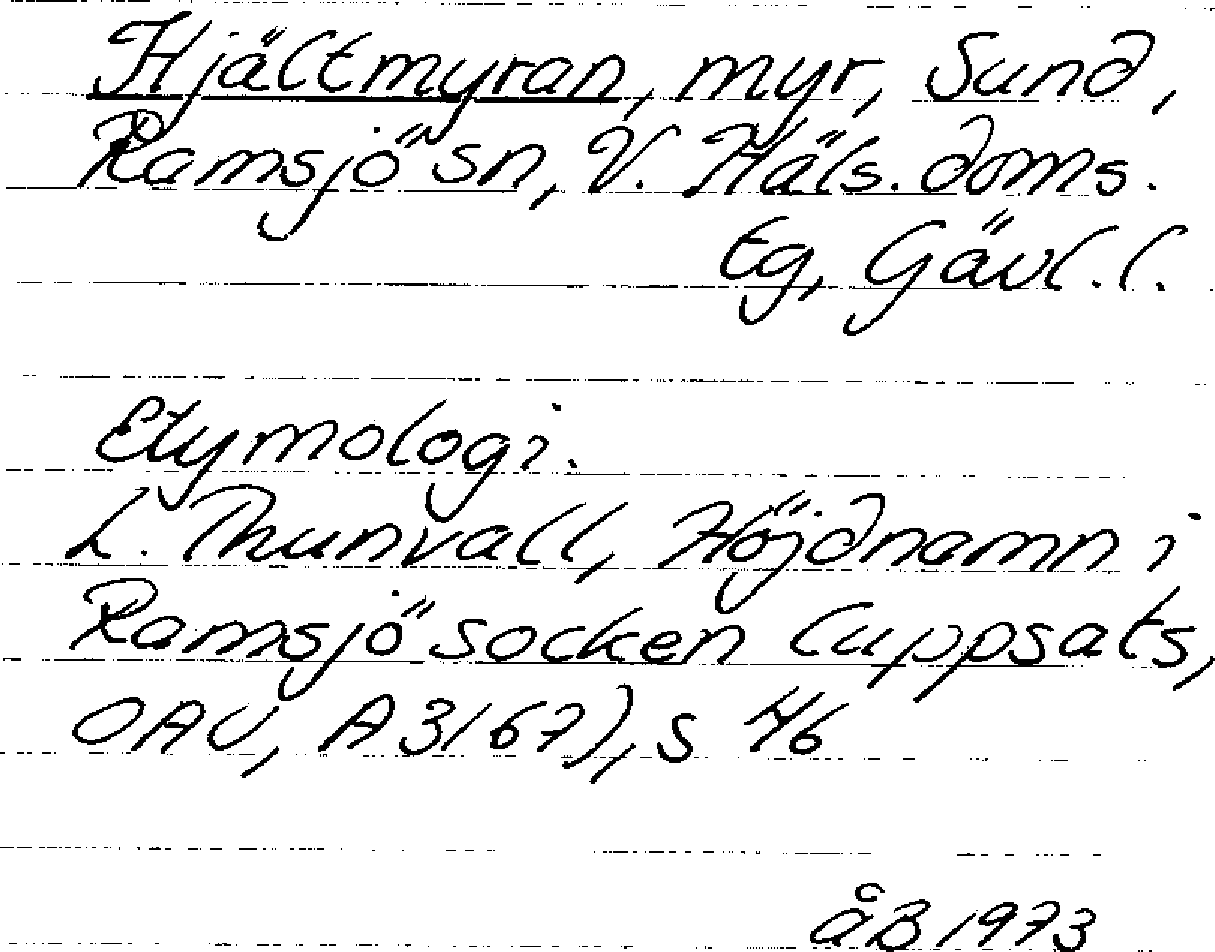 Hjältmyran, myr, Sund,
Ramsjö sn, V. Häls. doms.
tg, Gävl. l.
Etymologi.
L. Thunvall, Höjdnamn i
Ramsjö socken (uppsats,
OAU, A3167), s 46
ÅB 1973